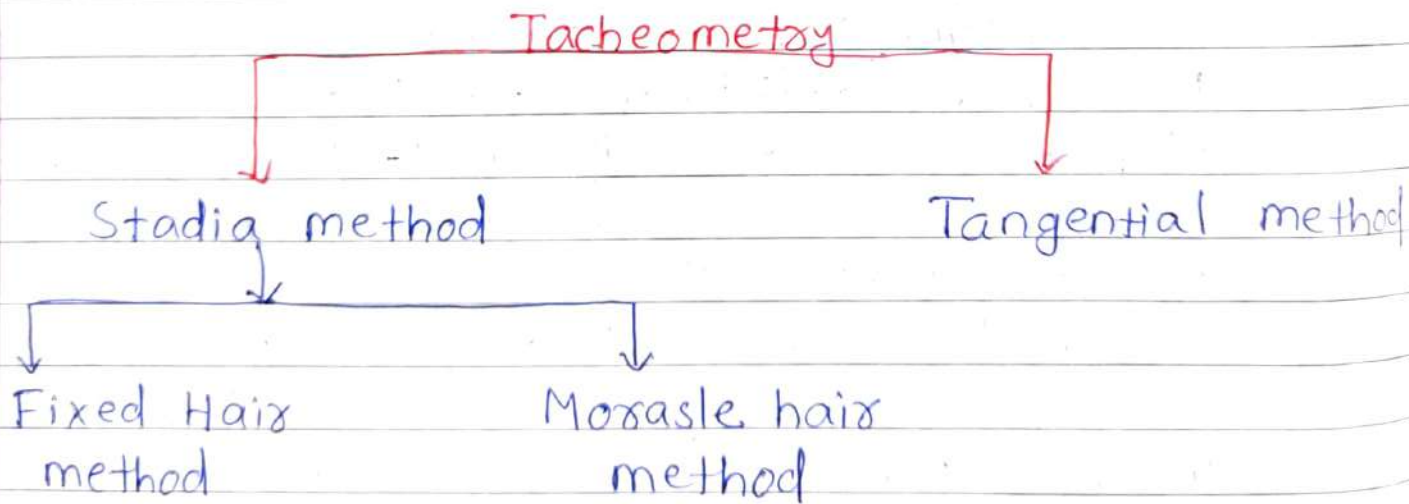 Tacheometry
Stadia method
Tangential method
Fixed Hair
method
Morasle hair
method